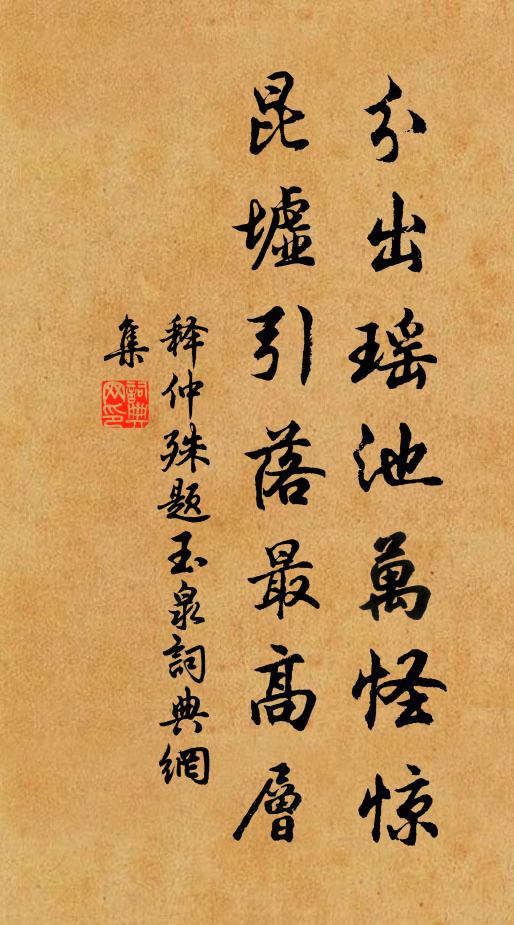 分出瑶池萬怪惊
昆墟引落最高層
释仲殊题玉泉詞典網
集
詞典网印